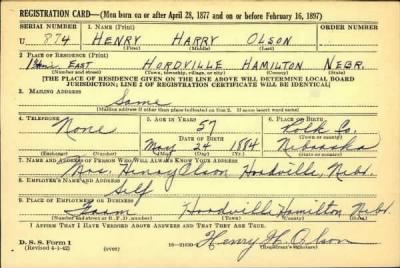 REGISTRATION CARD—(Men born on or after April 28, 1877 and on or before February 16, 1897)
SERIAL NUMBER 1. NAME (Print) ORDER NUMBER
U 874 HENRY HARRY OLSON
(First) (Middle) (Last)
2. PLACE OF RESIDENCE (Print)
EAST HORDVILLE HAMILTON NEBR.
(Number and street) (Town, township, village, or city) (County) (State)
[THE PLACE OF RESIDENCE GIVEN ON THE LINE ABOVE WILL DETERMINE LOCAL BOARD
JURISDICTION; LINE 2 OF REGISTRATION CERTIFICATE WILL BE IDENTICAL]
3. MAILING ADDRESS
Same
[Mailing address if other than place indicated on line 2. If same insert word same]
4. TELEPHONE 5. AGE IN YEARS 6. PLACE OF BIRTH
None 57 Polk Co.
DATE OF BIRTH (Town or county)
May 24 1884 Nebraska
(Exchange) (Number) (Mo.) (Day) (Yr.) (State or country)
7. NAME AND ADDRESS OF PERSON WHO WILL ALWAYS KNOW YOUR ADDRESS
Mrs. Henry Olson Hordville, Nebr.
8. EMPLOYER'S NAME AND ADDRESS
Self
9. PLACE OF EMPLOYMENT OR BUSINESS
Farm Hordville Hamilton Nebr.
(Number and street or R. F. D. number) (Town) (County) (State)
I AFFIRM THAT I HAVE VERIFIED ABOVE ANSWERS AND THAT THEY ARE TRUE.
D. S. S. Form 1
(Revised 4-1-42) (over) Henry H. Olson
(Registrant's signature)